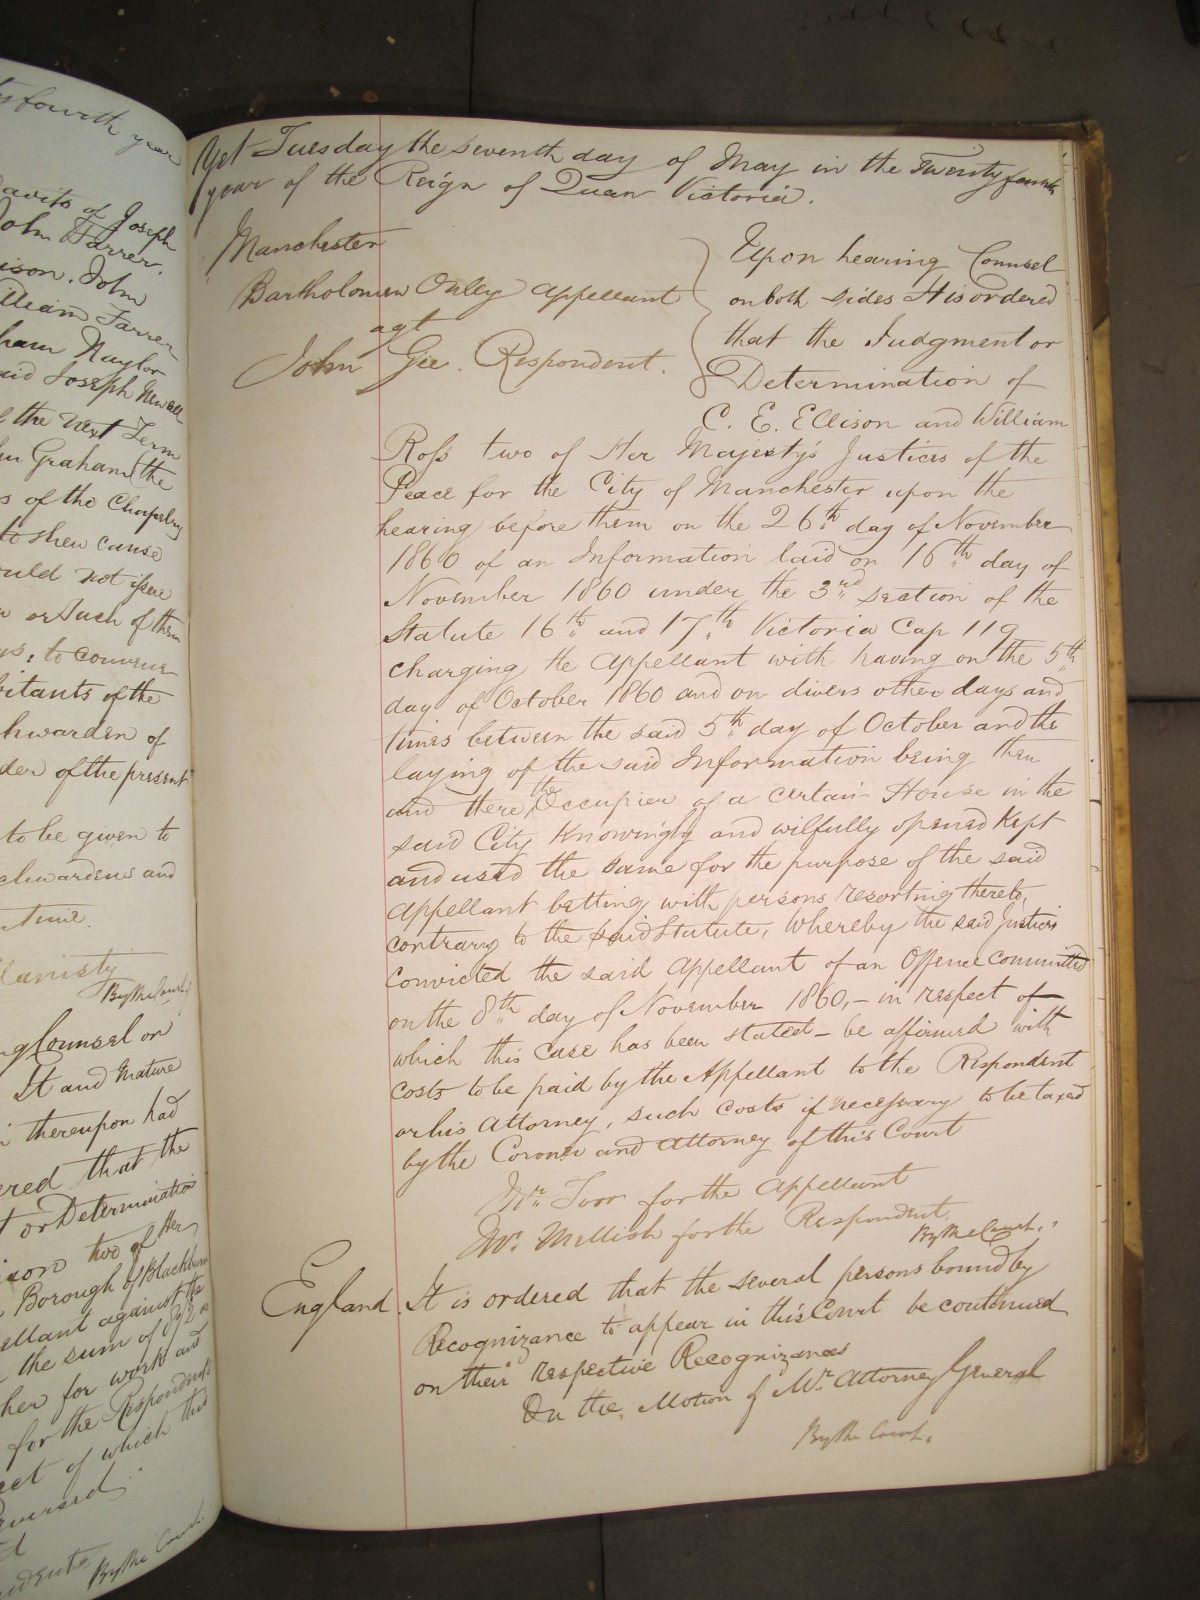 ts fourth year
avits of Joseph
John Farrer.
ison. John
illiam Farrer
ham Naylor
aid Joseph Newall
f the next Term
hn Graham (the
s of the Chapelry
to shew cause
ould not issue
or such of them
ys, to convene
bitants of the
hwarden of
der of the present
to be given to
chwardens and
time.
By the Court.
ng Counsel on
It and Mature
n thereupon had
ered that the
t or Determination
ison two of Her
Borough of Blackburn
ellant against the
the sum of
her for work and
for the Respondents
ect of which this
everse
By the Court.
Yet Tuesday the seventh day of May in the Twenty fourth
year of the Reign of Queen Victoria.
Manchester
Bartholomew Oxley Appellant
agt
John Gee. Respondent.
Upon hearing Counsel
on both sides It is ordered
that the Judgment or
Determination of
C. E. Ellison and William
Ross two of Her Majesty's Justices of the
Peace for the City of Manchester upon the
hearing before them on the 26th day of November
1860 of an Information laid on 16th day of
November 1860 under the 3rd section of the
Statute 16th and 17th Victoria Cap 119
charging the Appellant with having on the 5th
day of October 1860 and on divers other days and
times between the said 5th day of October and the
laying of the said Information being then
and there the Occupier of a certain House in the
said City knowingly and wilfully opened kept
and used the same for the purpose of the said
Appellant betting with persons resorting thereto,
contrary to the said Statute, whereby the said Justices
convicted the said Appellant of an Offence committed
on the 8th day of November 1860,- in respect of
which this case has been stated - be affirmed with
costs to be paid by the Appellant to the Respondent
or his Attorney, such costs if necessary to be taxed
by the Coroner and Attorney of this Court
Mr. Torr for the Appellant
Mr. Mellish for the Respondent.
By the Court.
England. It is ordered that the several persons bound by
Recognizance to appear in this Court be continued
on their respective Recognizances
On the Motion of Mr. Attorney General
By the Court.